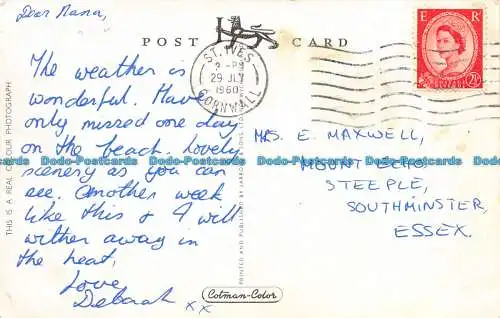 Dear Nana,
POST CARD
The weather is
wonderful. Have
only missed one day
on the beach. Lovely
scenery as you can
see. Another week
like this & I will
wither away in
the heat.
Love
Deborah
xx
ST. IVES
2 - PM
29 JLY
1960
CORNWALL
E R
MRS. E. MAXWELL,
MOUNT ECHO
STEEPLE,
SOUTHMINSTER,
ESSEX.
THIS IS A REAL COLOUR PHOTOGRAPH
Cotman-Color
Dodo-Postcards Dodo-Postcards Dodo-Postcards Dodo-Postcards